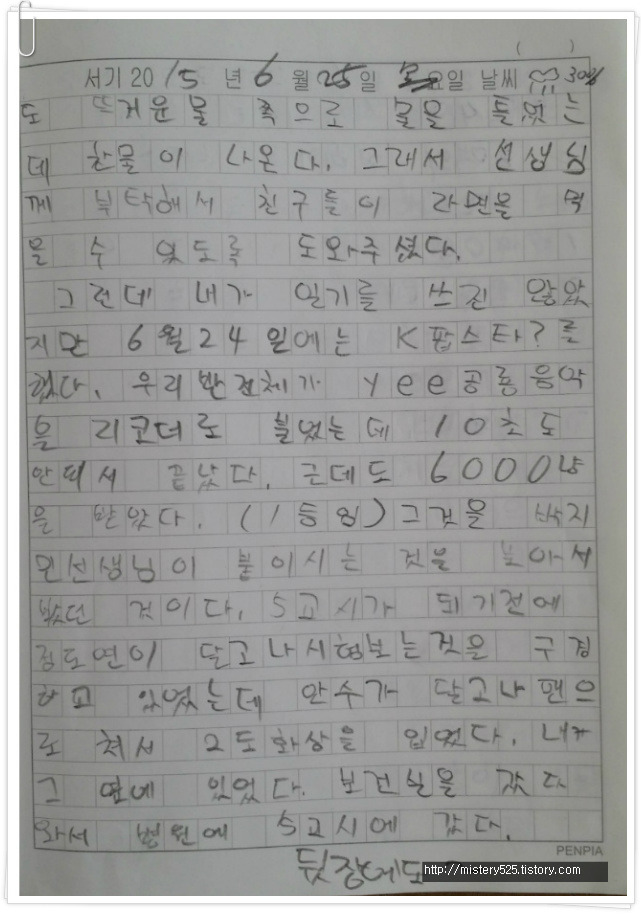 ( )
서기 20 15 년 6 월 25 일 요일 날씨 30%
도 뜨거운물 쪽으로 물을 틀었는
데 찬물이 나온다. 그래서 선생님
께 부탁해서 친구들이 라면을 먹
을 수 있도록 도와주셨다.
그런데 내가 일기를 쓰진 않았
지만 6월24일에는 K팝스타?를
했다. 우리반전체가 yee공룡음악
을 리코더로 불었는데 10초도
안돼서 끝났다. 근데도 6000냥
을 받았다. (1등임) 그것을
선생님이 붙이시는 것을 보아서
썼던 것이다. 5교시가 되기전에
김도연이 달고나시험보는것을 구경
하고 있었는데 안수가 달고나팬으
로 쳐서 2도화상을 입었다. 내가
그 옆에 있었다. 보건실을 갔다
와서 병원에 5교시에 갔다.
PENPIA
뒷장에도
http://mistery525.tistory.com